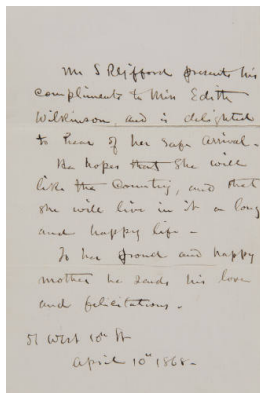 Mr S R Gifford presents his
compliments to Miss Edith
Wilkinson, and is delighted
to hear of her safe arrival -
He hopes that she will
like the Country, and that
she will live in it a long
and happy life -
To her proud and happy
mother he sends his love
and felicitations -
51 West 10th St
April 10th 1868 -